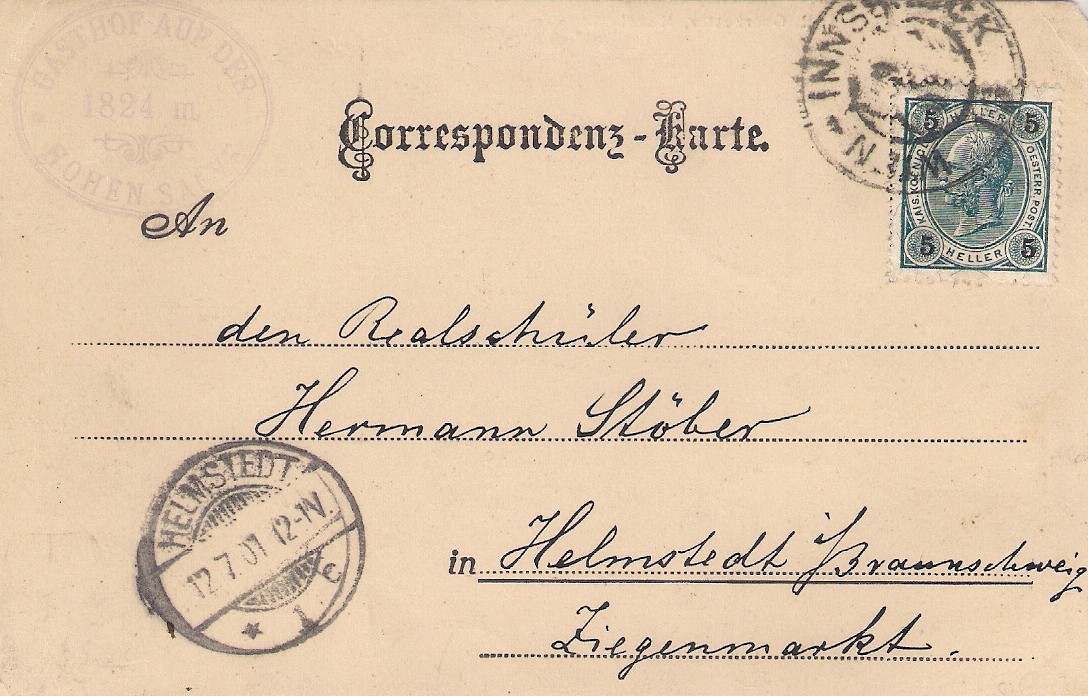 GASTHOF AUF DER
1824 m.
HOHEN SAL
Correspondenz-Karte.
INNSBRUCK
5 HELLER 5
KAIS. KOENIGL. OESTERR. POST.
5 HELLER 5
An
den Realschüler
Hermann Stöber
HELMSTEDT
12.7.01.12-1N.
* 1 c
in Helmstedt i/Braunschweig
Ziegenmarkt.